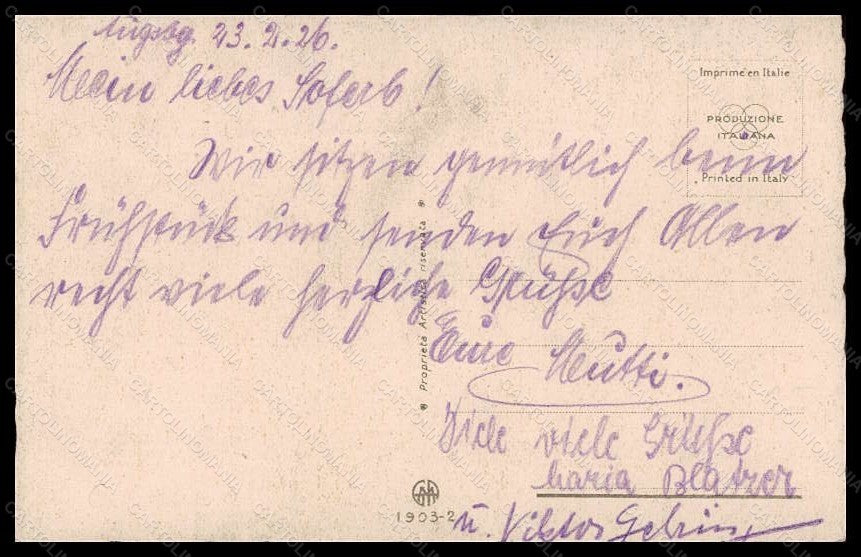 Augsbg 23.2.26.
Mein liebes
Wir sitzen gemütlich beim
Frühstück und senden Euch Allen
recht viele herzliche Grüße
Eure Mutti.
Viele viele Grüße
Maria Blatzer
u. Viktor
Imprimé en Italie
PRODUZIONE
ITALIANA
Printed in Italy
Proprieta Artistica riservata
1903-2
CARTOLINOMANIA